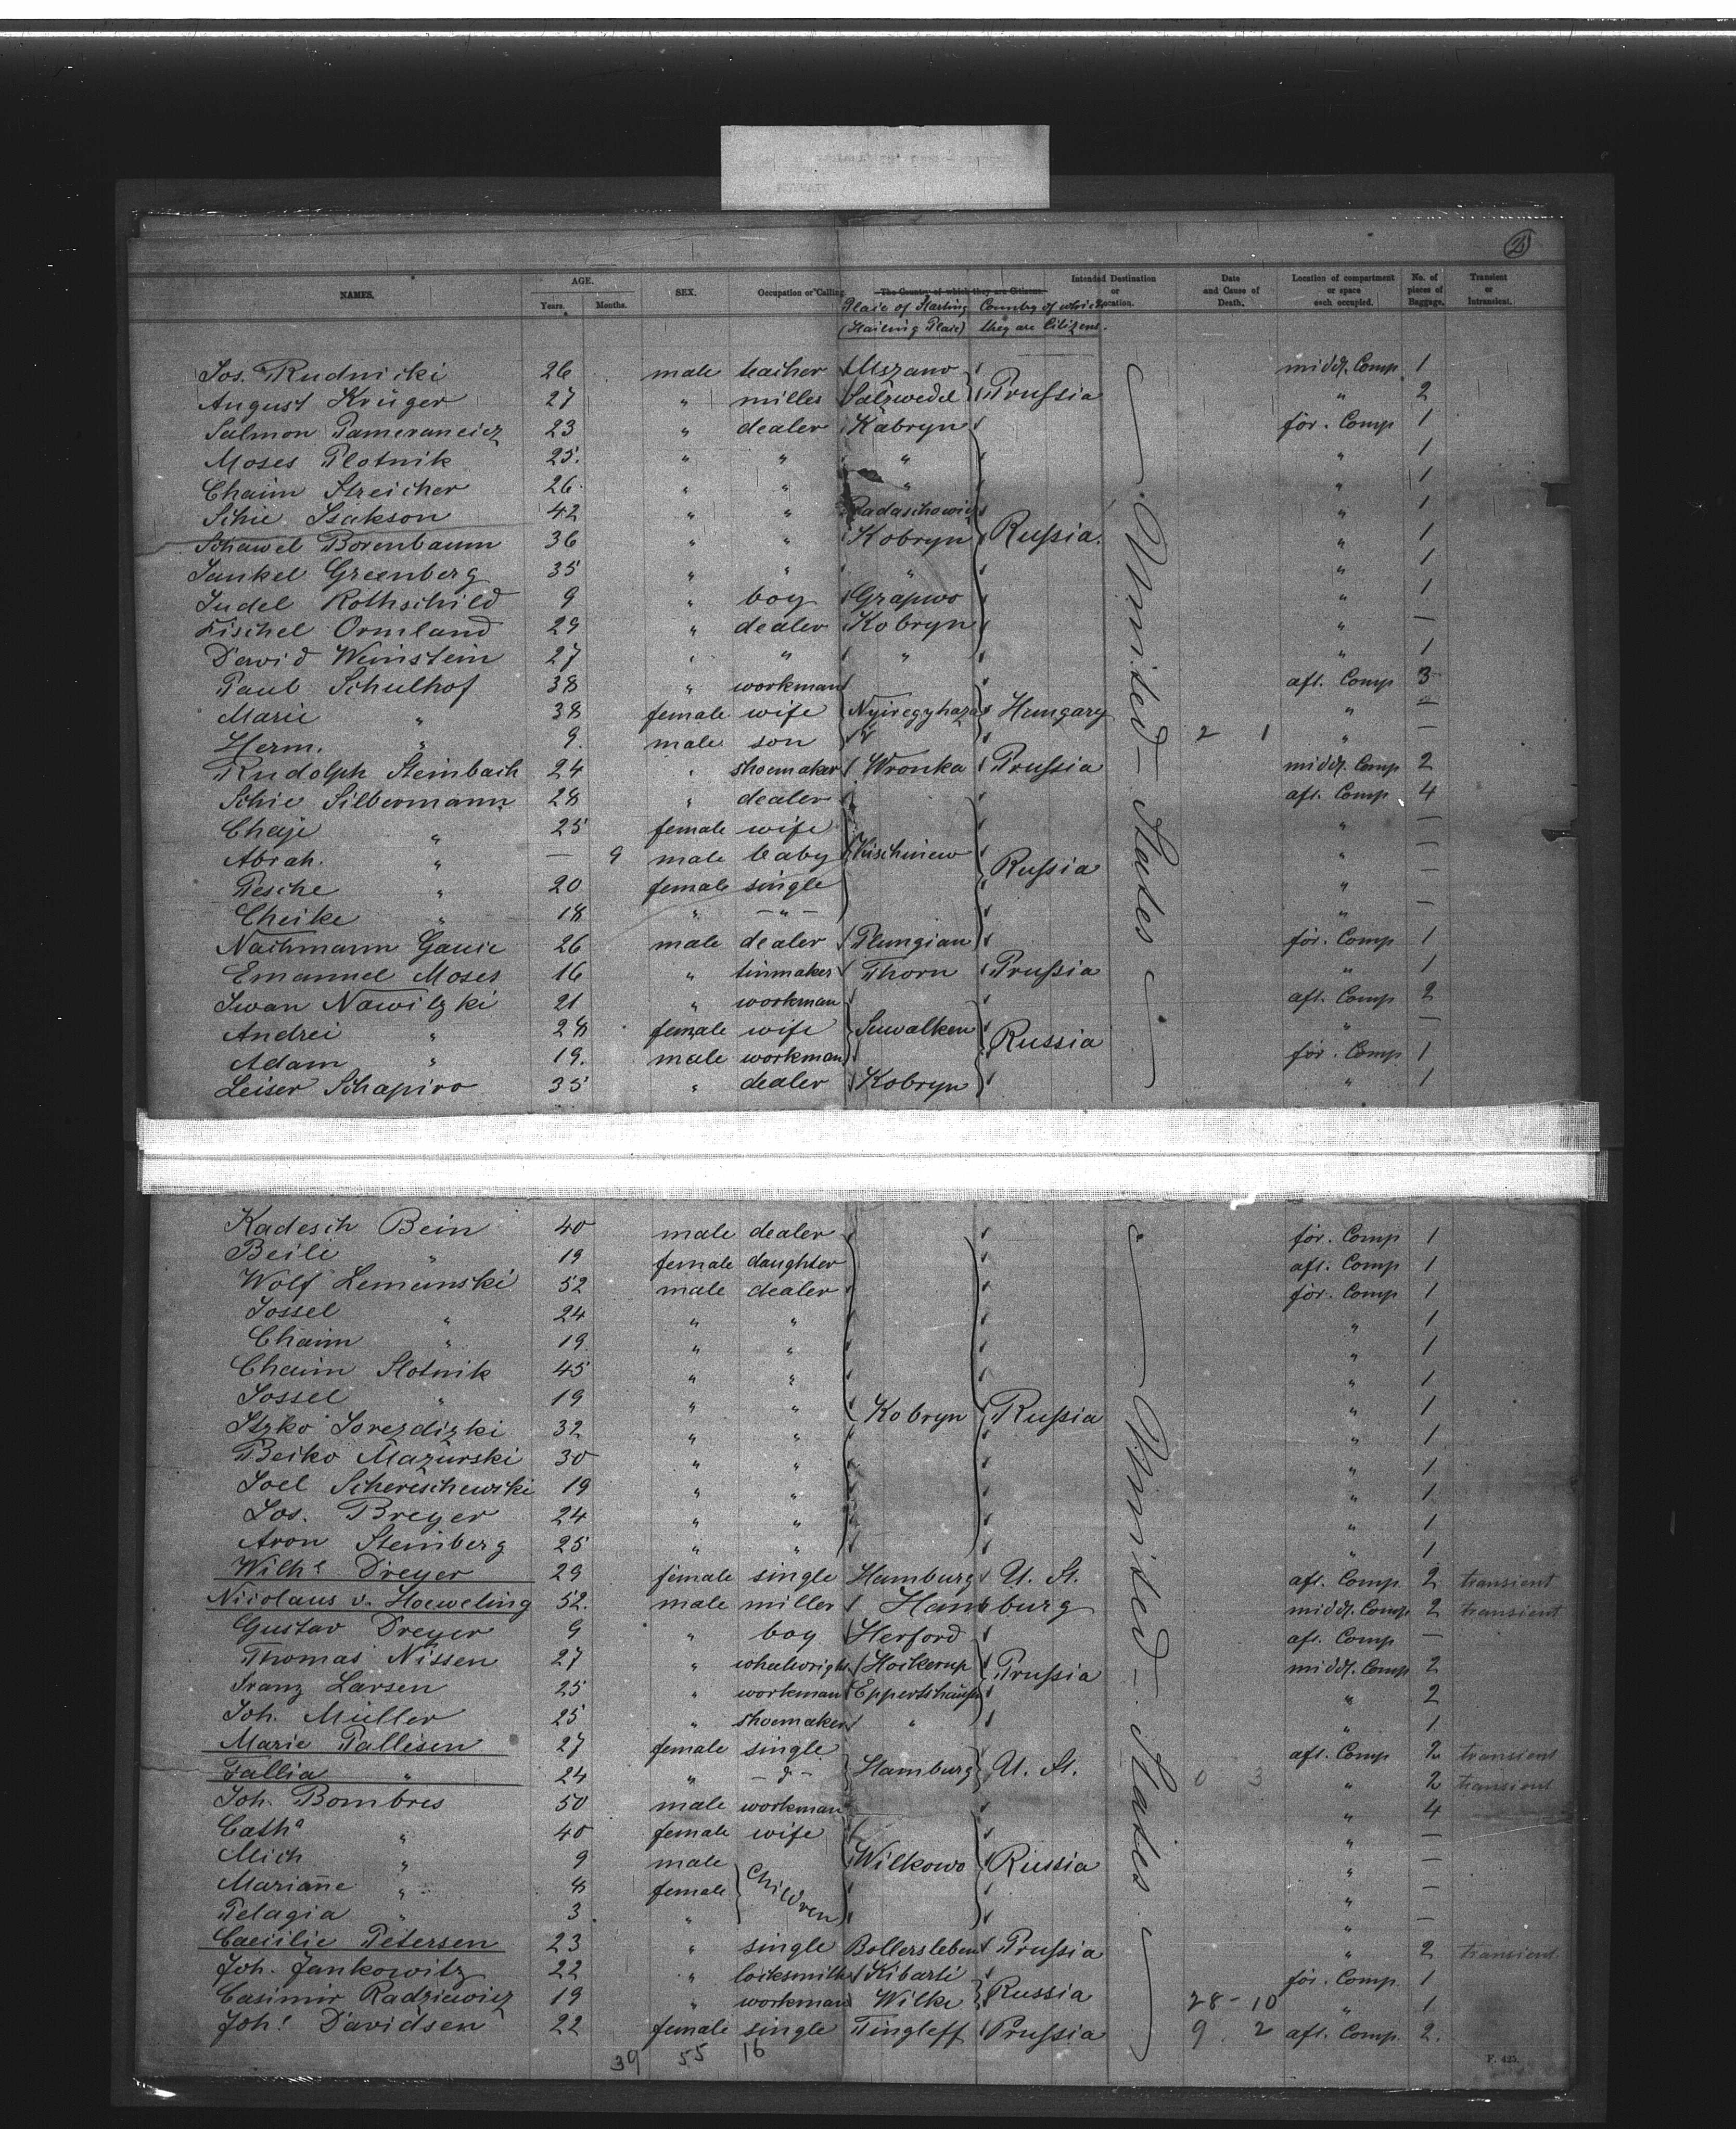 2
NAMES. AGE. Years. Months. SEX. Occupation or Calling The Country of which they are Citizens Intended Destination or Location. Date and Cause of Death. Location of compartment or space each occupied. No. of pieces of Baggage. Transient or Intransient.
Place of Starting Country of which
(Hailing Place) they are Citizens.
Jos. Rudnicki 26 male teacher middl. Comp 1
August Krüger 27 " miller Salzwedel Prußia " 2
Salmon 23 " dealer Kabryn för. Comp 1
Moses Plotnik 25. " " " " 1
Chaim Streicher 26. " " " " 1
Schie Isakson 42 " " Radaschowiz " 1
Schawel Borenbaum 36 " " Kobryn Rußia. " 1
Jankel Greenberg 35 " " " " 1
Judel Rothschild 9 " boy Grajewo " 1
Fischel Ormland 29 " dealer Kobryn " —
David Weinstein 27 " " " " 1
Paul Schulhof 38 " workman aft. Comp 3
Marie " 38 female wife Nyiregyhaza Hungary " —
Herm. " 9. male son 2 1 " —
Rudolph Steinbach 24 " shoemaker Wronka Prußia middl. Comp 2
Schie Silbermann 28 " dealer aft. Comp 4
Chaje " 25 female wife " —
Abrah. " — 9 male baby Kischinew Rußia " —
Pesche " 20 female single " —
Cheike " 18 " — " — " —
Nachmann 26 male dealer Plungian för. Comp 1
Emanuel Moses 16 " tinmaker Thorn Prußia " 1
Iwan Nawilzki 21 " workman aft. Comp 2
Andrei " 28 female wife Suwalken Russia " —
Adam " 19. male workman för. Comp 1
Leiser Schapiro 35 " dealer Kobryn " 1
United States
Kadesch Bein 40 male dealer för. Comp 1
Beile " 19 female daughter aft. Comp 1
Wolf Lemanski 52 male dealer för. Comp 1
Jossel " 24 " " " 1
Chaim " 19 " " " 1
Chaim Slotnik 45 " " " 1
Jossel " 19 " " Kobryn Rußia " 1
Itzko 32 " " " 1
Beiko Mazurski 30 " " " 1
Joel Schereschewski 19 " " " 1
Jos. Breyer 24 " " " 1
Aron Steinberg 25 " " " 1
Wilhe Dreyer 29 female single Hamburg U. St. aft. Comp. 2 transient
Nicolaus v. Hoeweling 52. male miller Hamburg middl. Comp 2 transient
Gustav Dreyer 9 " boy Herford aft. Comp —
Thomas Nissen 27 " wheelwright Hockerup Prußia middl. Comp 2
Franz Larsen 25 " workman Eppertshausen " 2
Joh. Müller 25 " shoemaker " " 1
Marie Pallisen 27 female single Hamburg U. St. aft. Comp 2 transient
Fallia " 24 " — d — 0 3 " 2 transient
Joh. Bombres 50 male workman " 4
Catha " 40 female wife " —
Mich " 9 male Children Wilkowo Russia " —
Marianne " 8 female " —
Pelagia " 3. " " —
Caecilie Petersen 23 " single Bollersleben Prußia " 2 transient
Joh. Jankowitz 22 " locksmith Kibarti Russia för. Comp. 1
Casimir Radziewicz 19 " workman Wilke 28 - 10 " 1
Johe Davidsen 22 female single Tingleff Prußia 9 2 aft. Comp. 2.
United States
39 55 16
F. 425.